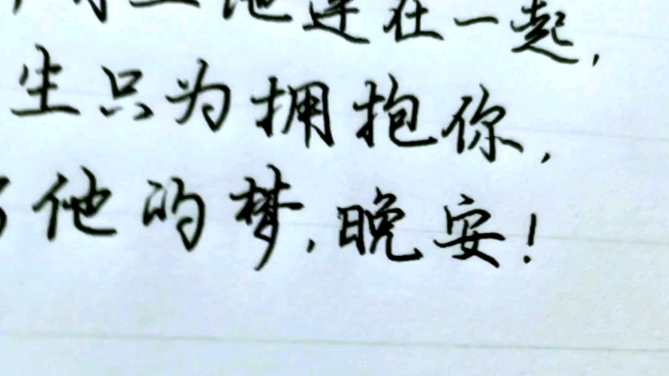 地连在一起,
生只为拥抱你,
他的梦,晚安!